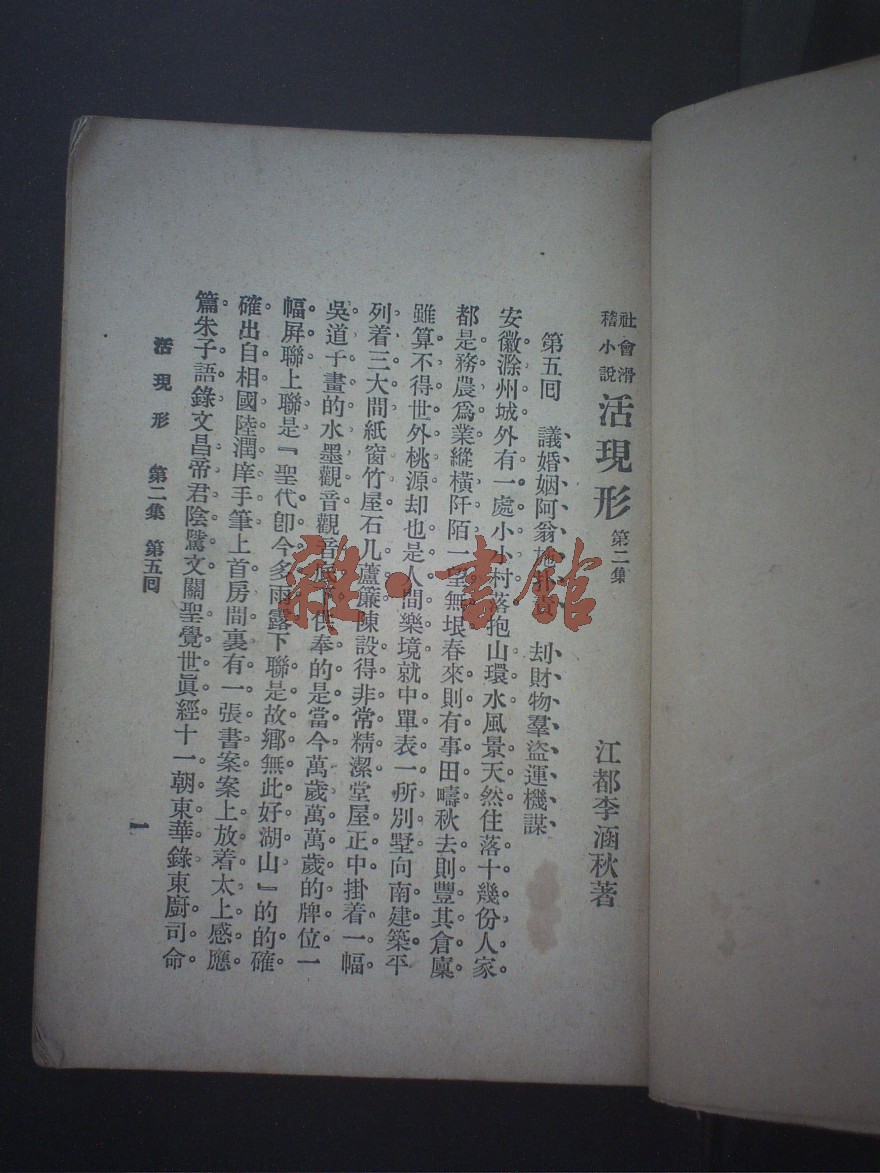 社會滑
稽小說
活現形 第二集
江都李涵秋著
第五回 議婚姻阿翁 劫財物羣盜運機謀
安徽滁州城外有一處小小村落抱山環水風景天然住落十幾份人家。
都是務農爲業縱橫阡陌一望無垠春來則有事田疇秋去則豐其倉廩
雖算不得世外桃源却也是人間樂境就中單表一所別墅向南建築平
列着三大間紙窗竹屋石几蘆簾陳設得非常精潔堂屋正中掛着一幅
吳道子畫的水墨觀音觀音底下供奉的是當今萬歲萬萬歲的牌位一
幅屛聯上聯是『聖代卽今多雨露下聯是故鄉無此好湖山』的的確
確出自相國陸潤庠手筆上首房間裏有一張書案案上放着太上感應
篇朱子語錄文昌帝君陰騭文關聖覺世眞經十一朝東華錄東廚司命
活現形 第二集 第五回
一
雜·書館